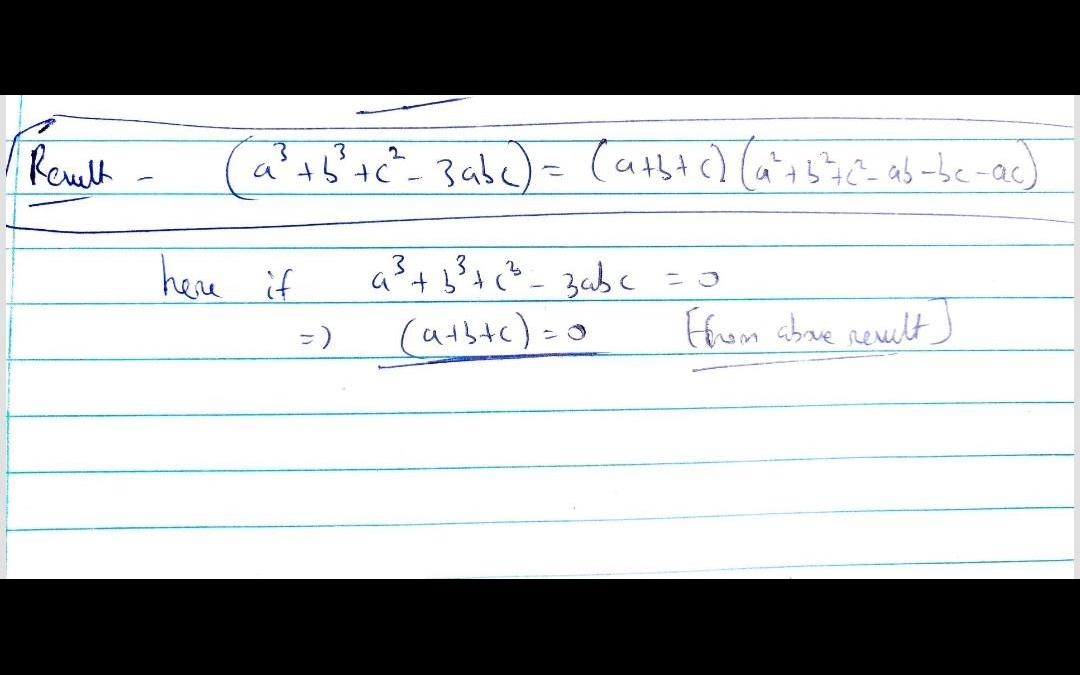 Result - (a³+b³+c²-3abc) = (a+b+c)(a²+b²+c²-ab-bc-ac)
here if a³+b³+c³-3abc = 0
=) (a+b+c) = 0 [from above result]